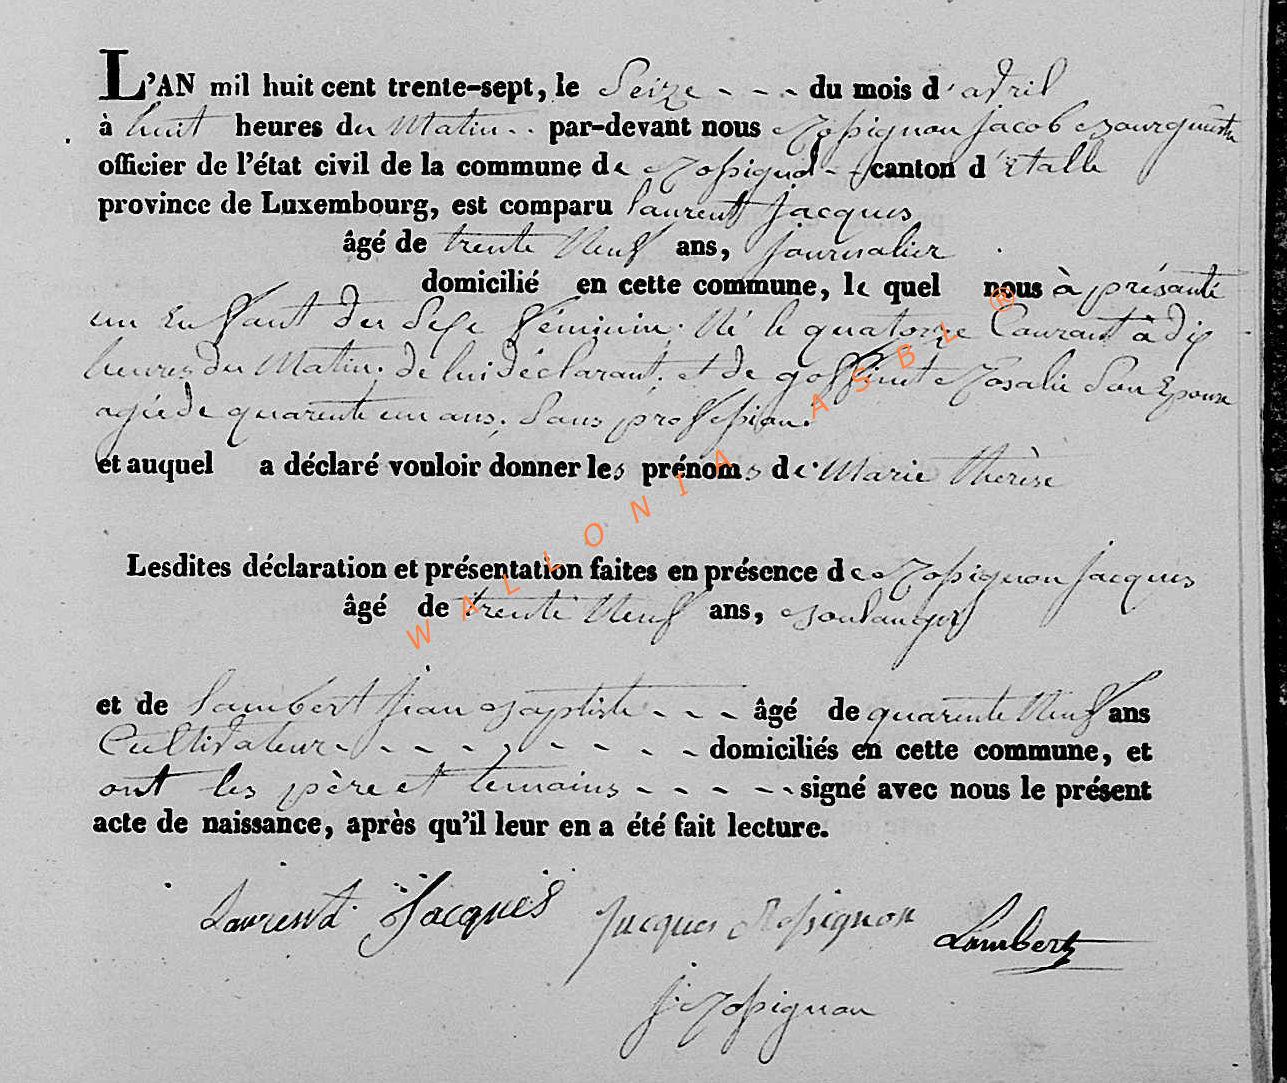 L'AN mil huit cent trente-sept, le Seize - - - du mois d'avril
à huit heures du Matin - - par-devant nous Rossignon Jacob Bourgmestre
officier de l'état civil de la commune de Rossignol - canton d'Etalle
province de Luxembourg, est comparu Laurent Jacques
âgé de trente Neuf ans, journalier
domicilié en cette commune, le quel nous à présanté
un Enfant du Sexe féminin. Né le quatorze Courant à dix
heures du Matin. de lui déclarant, et de goffinet Rosalie Son Epouse
agée de quarente un ans, Sans proffession.
et auquel a déclaré vouloir donner les prénoms de Marie thérèse
Lesdites déclaration et présentation faites en présence de Rossignon jacques
âgé de trente Neuf ans, Boulanger
et de Lambert jean Baptiste - - - âgé de quarente Neuf ans
Cultivateur - - - - - - - - - domiciliés en cette commune, et
ont les père et temoins - - - - - signé avec nous le présent
acte de naissance, après qu'il leur en a été fait lecture.
Laurent Jacques Jacques Rossignon Lambert
J. Rossignon
WALLONIA ASBL ®